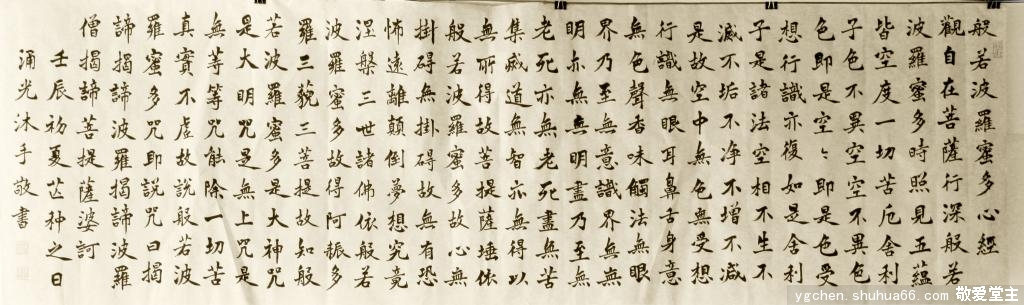 般若波羅蜜多心經
觀自在菩薩行深般若
波羅蜜多時照見五蘊
皆空度一切苦厄舍利
子色不異空空不異色
色即是空〻即是色受
想行識亦復如是舍利
子是諸法空相不生不
滅不垢不净不增不减
是故空中無色無受想
行識無眼耳鼻舌身意
無色聲香味觸法無眼
界乃至無意識界無無
明亦無無明盡乃至無
老死亦無老死盡無苦
集滅道無智亦無得以
無所得故菩提薩埵依
般若波羅蜜多故心無
掛碍無掛碍故無有恐
怖遠離顛倒夢想究竟
涅槃三世諸佛依般若
波羅蜜多故得阿耨多
羅三藐三菩提故知般
若波羅蜜多是大神咒
是大明咒是無上咒是
無等等咒能除一切苦
真實不虛故說般若波
羅蜜多咒即說咒曰揭
諦揭諦波羅揭諦波羅
僧揭諦菩提薩婆訶
壬辰初夏芒神之日
涌光沐手敬書
ygchen.shuhua66.com 敬爱堂主